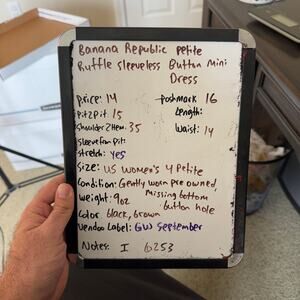 Banana Republic petite
Ruffle sleeveless Button Mini
Dress
price: 14 poshmark 16
Pit2Pit: 15 Length:
Shoulder2Hem: 35 Waist: 14
Sleeve from Pit:
Stretch: yes
Size: US Women's 4 Petite
Condition: Gently worn pre owned,
Missing bottom
button hole
Weight: 9oz
Color black, brown
Vendoo Label: GW September
Notes: I 6253